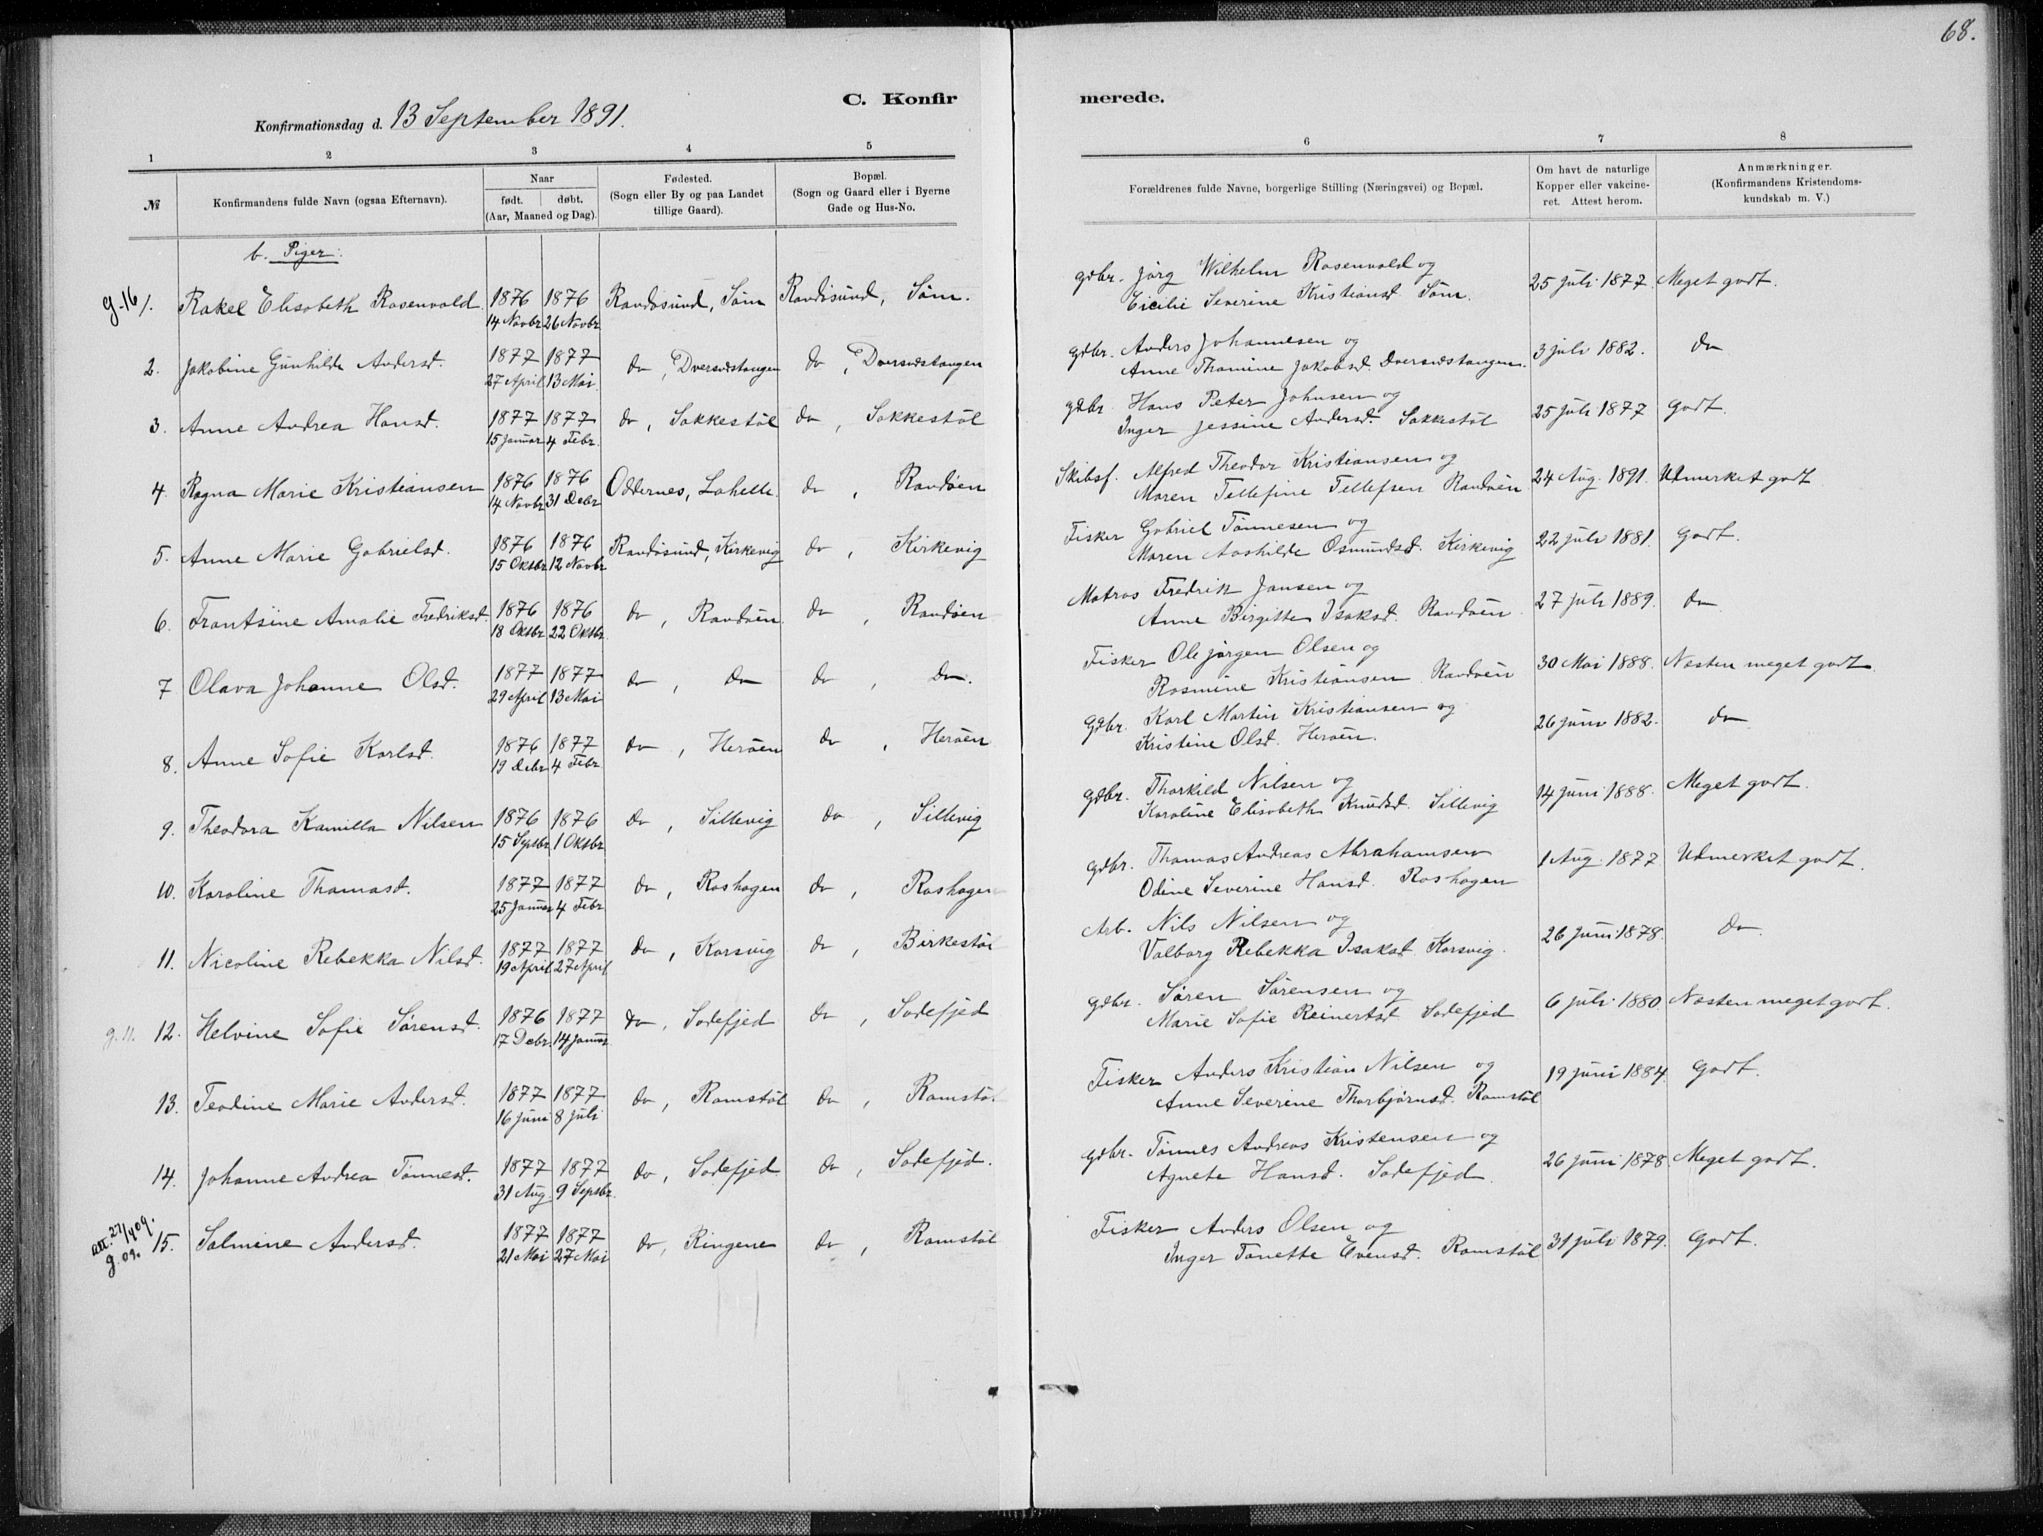 68.
C. Konfir merede.
Konfirmationsdag d. 13 September 1891.
1 2 3 4 5 6 7 8
№ Konfirmandens fulde Navn (ogsaa Efternavn). Naar født. døbt. (Aar, Maaned og Dag). Fødested. (Sogn eller By og paa Landet tillige Gaard). Bopæl. (Sogn og Gaard eller i Byerne Gade og Hus-No. Forældrenes fulde Navne, borgerlige Stilling (Næringsvei) og Bopæl. Om havt de naturlige Kopper eller vakcineret. Attest herom. Anmærkninger. (Konfirmandens Kristendomskundskab m. V.)
b. Piger:
g. 16 1. Rakel Elisabeth Rosenvold 1876 14 Novbr 1876 26 Novbr Randøsund, Søm Randøsund, Søm. Gdbr. Jørg Wilhelm Rosenvold og
Cicilie Severine Kristiansd. Søm. 25 juli 1877. Meget godt.
2. Jakobine Gunhilde Andersd. 1877 27 April 1877 13 Mai do, Dversdstangen do, Dversdstangen Gdbr. Anders Johannesen og
Anne Thomine Jakobsd. Dversdstangen. 3 juli 1882. do
3. Anne Andrea Hansd. 1877 15 Januar 1877 4 Febr. do, Sakkestøl do, Sakkestøl Gdbr. Hans Peter Johnsen og
Inger Jessine Andersd. Sakkestøl 25 juli 1877 Godt.
4. Ragna Marie Kristiansen 1876 14 Novbr 1876 31 Debr Oddernes, Lahelle do, Randøen Skibsf. Alfred Theodor Kristiansen og
Maren Tellefine Tellefsen Randøen 24 Aug. 1891. Udmerket godt
5. Anne Marie Gabrielsd. 1876 15 Oktbr 1876 12 Novbr Randøsund, Kirkevig do, Kirkevig Fisker Gabriel Tønnesen og
Maren Aashilde Osmundsd. Kirkevig 22 juli 1881. Godt.
6. Frantsine Amalie Fredriksd. 1876 18 Oktbr 1876 22 Oktbr. do, Randøen do, Randøen Matros Fredrik Jansen og
Anne Birgitte Isaksd. Randøen. 27 juli 1889. do
7 Olava Johanne Olsd. 1877 29 April 1877 13 Mai do, do do, do. Fisker Ole Jørgen Olsen og
Rosmine Kristiansen Randøen 30 Mai 1888. Næsten meget godt
8. Anne Sofie Karlsd. 1876 19 Debr 1877 4 Febr do, Herøen do, Herøen Gdbr. Karl Martin Kristiansen og
Kristine Olsd. Herøen. 26 juni 1882. do
9. Theodora Kamilla Nilsen 1876 15 Septbr 1876 1 Oktbr do, Sillevig do, Sillevig Gdbr. Thorkild Nilsen og
Karoline Elisabeth Knudsd. Sillevig 14 juni 1888. Meget godt.
10. Karoline Thomasd. 1877 25 Januar 1877 4 Febr do, Roshagen do, Roshagen Gdbr. Thomas Andreas Abrahamsen
Odine Severine Hansd. Roshagen 1 Aug. 1877 Udmerket godt.
11. Nicoline Rebekka Nilsd. 1877 19 April 1877 27 April do, Korsvig do, Birkestøl Arb. Nils Nilsen og
Valborg Rebekka Isaksd. Korsvig. 26 juni 1878. do
g. 11. 12. Helvine Sofie Sørensd. 1876 17 Debr. 1877 14 Januar do, Sodefjed do, Sodefjed Gdbr. Søren Sørensen og
Marie Sofie Reinertsd Sodefjed 6 juli 1880. Næsten meget godt.
13. Teodine Marie Andersd. 1877 16 juni 1877 8 juli do, Ramstøl do, Ramstøl Fisker Anders Kristian Nilsen og
Anne Severine Thorbjørnsd. Ramstøl 19 juni 1884. Godt.
14. Johanne Andrea Tønnesd. 1877 31 Aug 1877 9 Septbr. do, Sodefjed do, Sodefjed. Gdbr. Tønnes Andreas Kristensen og
Agnete Hansd. Sodefjed. 26 juni 1878. Meget godt.
att. 27/4 09. g. 09. 15. Salmine Andersd. 1877 21 Mai 1877 27 Mai do, Ringene do, Ramstøl Fisker Anders Olsen og
Inger Tonette Evensd. Ramstøl 31 juli 1879. Godt.